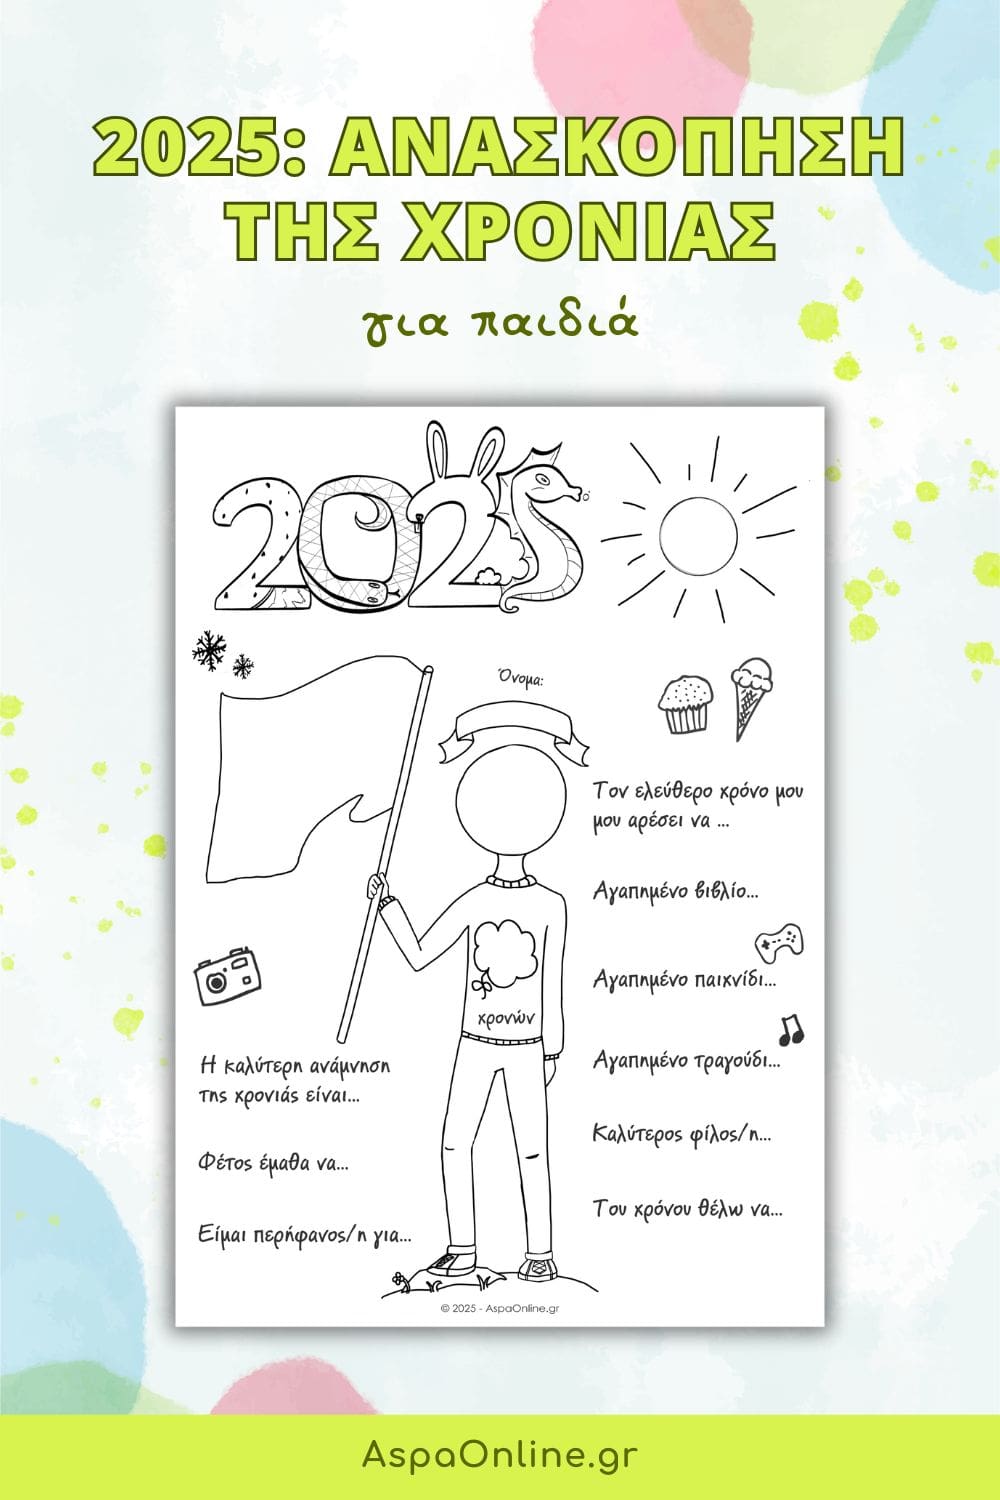 2025: ΑΝΑΣΚΟΠΗΣΗ
ΤΗΣ ΧΡΟΝΙΑΣ
για παιδιά
2025
Όνομα:
Τον ελεύθερο χρόνο μου
μου αρέσει να ...
Αγαπημένο βιβλίο...
Αγαπημένο παιχνίδι...
χρονών
Αγαπημένο τραγούδι...
Καλύτερος φίλος/η...
Του χρόνου θέλω να...
Η καλύτερη ανάμνηση
της χρονιάς είναι...
Φέτος έμαθα να...
Είμαι περήφανος/η για...
© 2025 - AspaOnline.gr
AspaOnline.gr